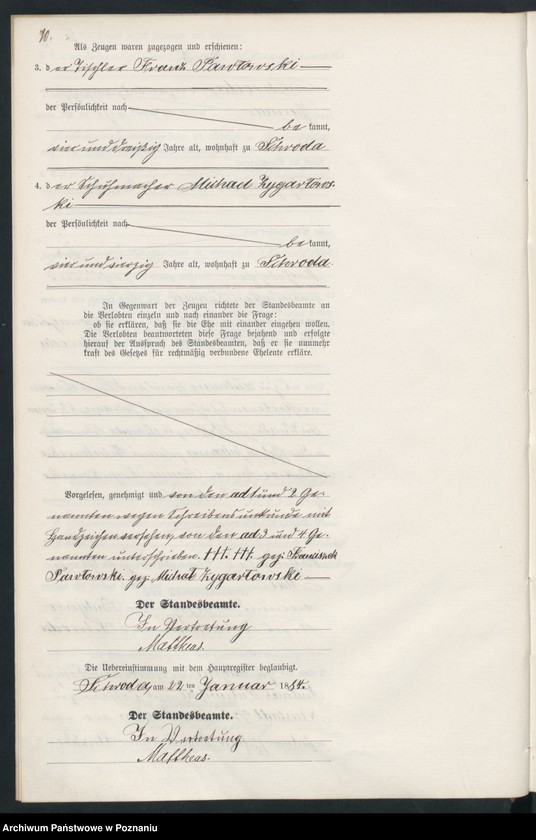 10.
Als Zeugen waren zugezogen und erschienen:
3. der Tischler Franz Pawłowski
der Persönlichkeit nach
be kannt,
vier und dreißig Jahre alt, wohnhaft zu Schroda
4. der Schuhmacher Michael Zygartows-
ki
der Persönlichkeit nach
be kannt,
vier und vierzig Jahre alt, wohnhaft zu Schroda.
In Gegenwart der Zeugen richtete der Standesbeamte an
die Verlobten einzeln und nach einander die Frage:
ob sie erklären, daß sie die Ehe mit einander eingehen wollen.
Die Verlobten beantworteten diese Frage bejahend und erfolgte
hierauf der Ausspruch des Standesbeamten, daß er sie nunmehr
kraft des Gesetzes für rechtmäßig verbundene Eheleute erkläre.
Vorgelesen, genehmigt und von den ad 1 und 2 Ge-
nannten wegen Schreibensunkunde mit
Handzeichen versehen, von den ad 3 und 4 Ge-
nannten unterschrieben. ttt. ttt. gez: Franciszek
Pawłowski. gez: Michał Zygartowski
Der Standesbeamte.
In Vertretung
Mattheas.
Die Uebereinstimmung mit dem Hauptregister beglaubigt.
Schroda, am 22 ten Januar 1884.
Der Standesbeamte.
In Vertretung
Mattheas.
Archiwum Państwowe w Poznaniu